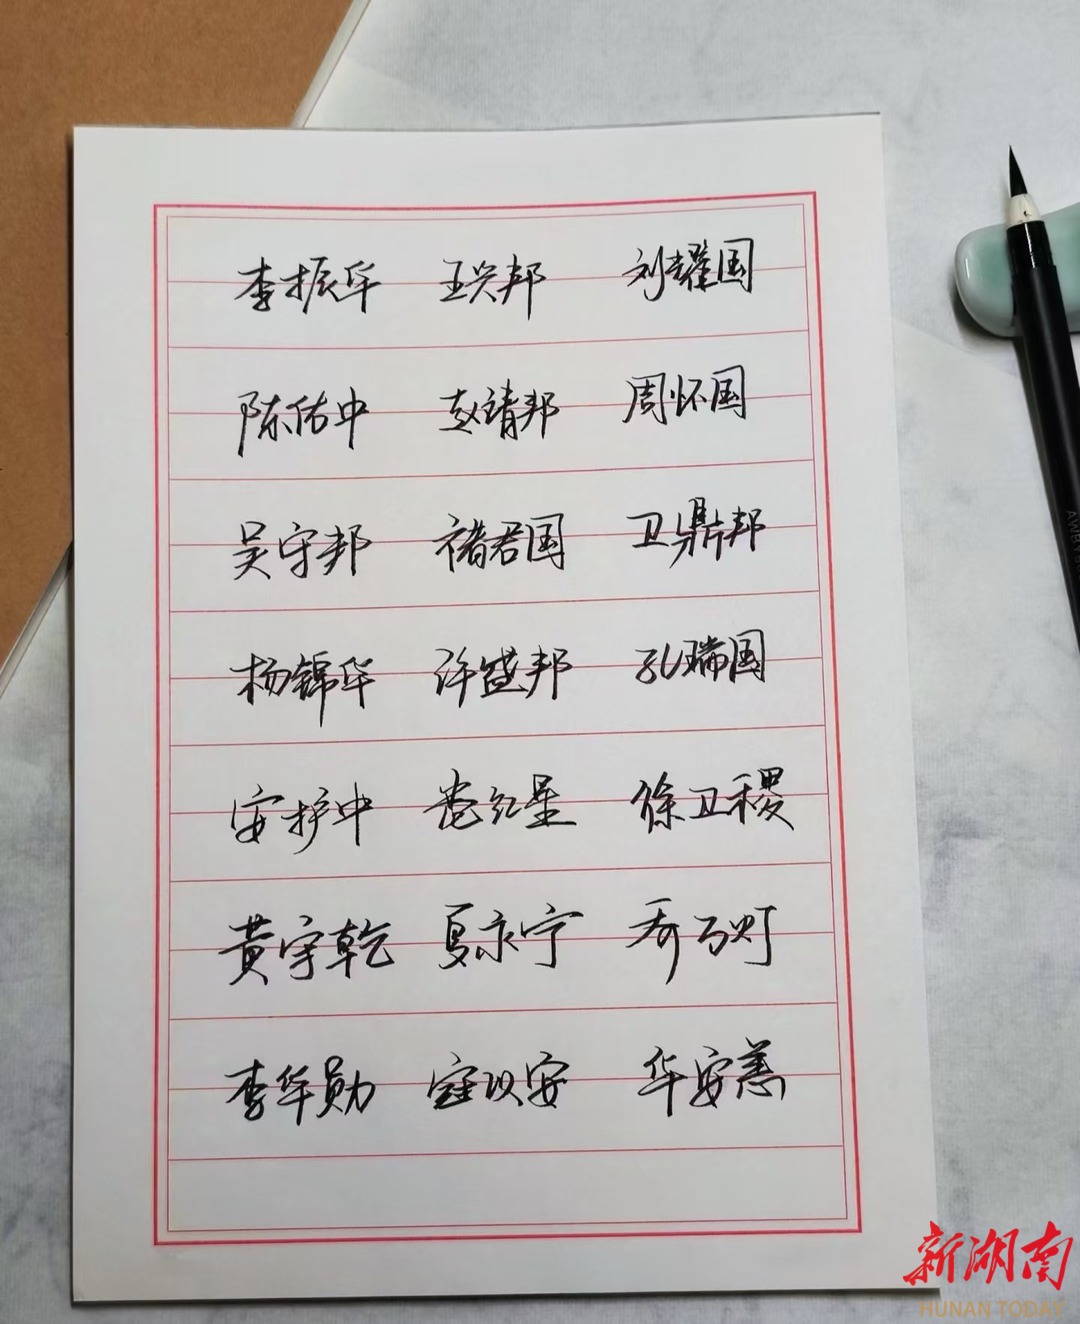 李振华 王兴邦 刘耀国
陈佑中 赵靖邦 周怀国
吴守邦 褚君国 卫鼎邦
杨锦华 许盛邦 孔瑞国
安护中 苍红星 徐卫稷
黄宇乾 夏永宁 乔万町
李华勋 寇以安 华安善
新湖南
HUNAN TODAY